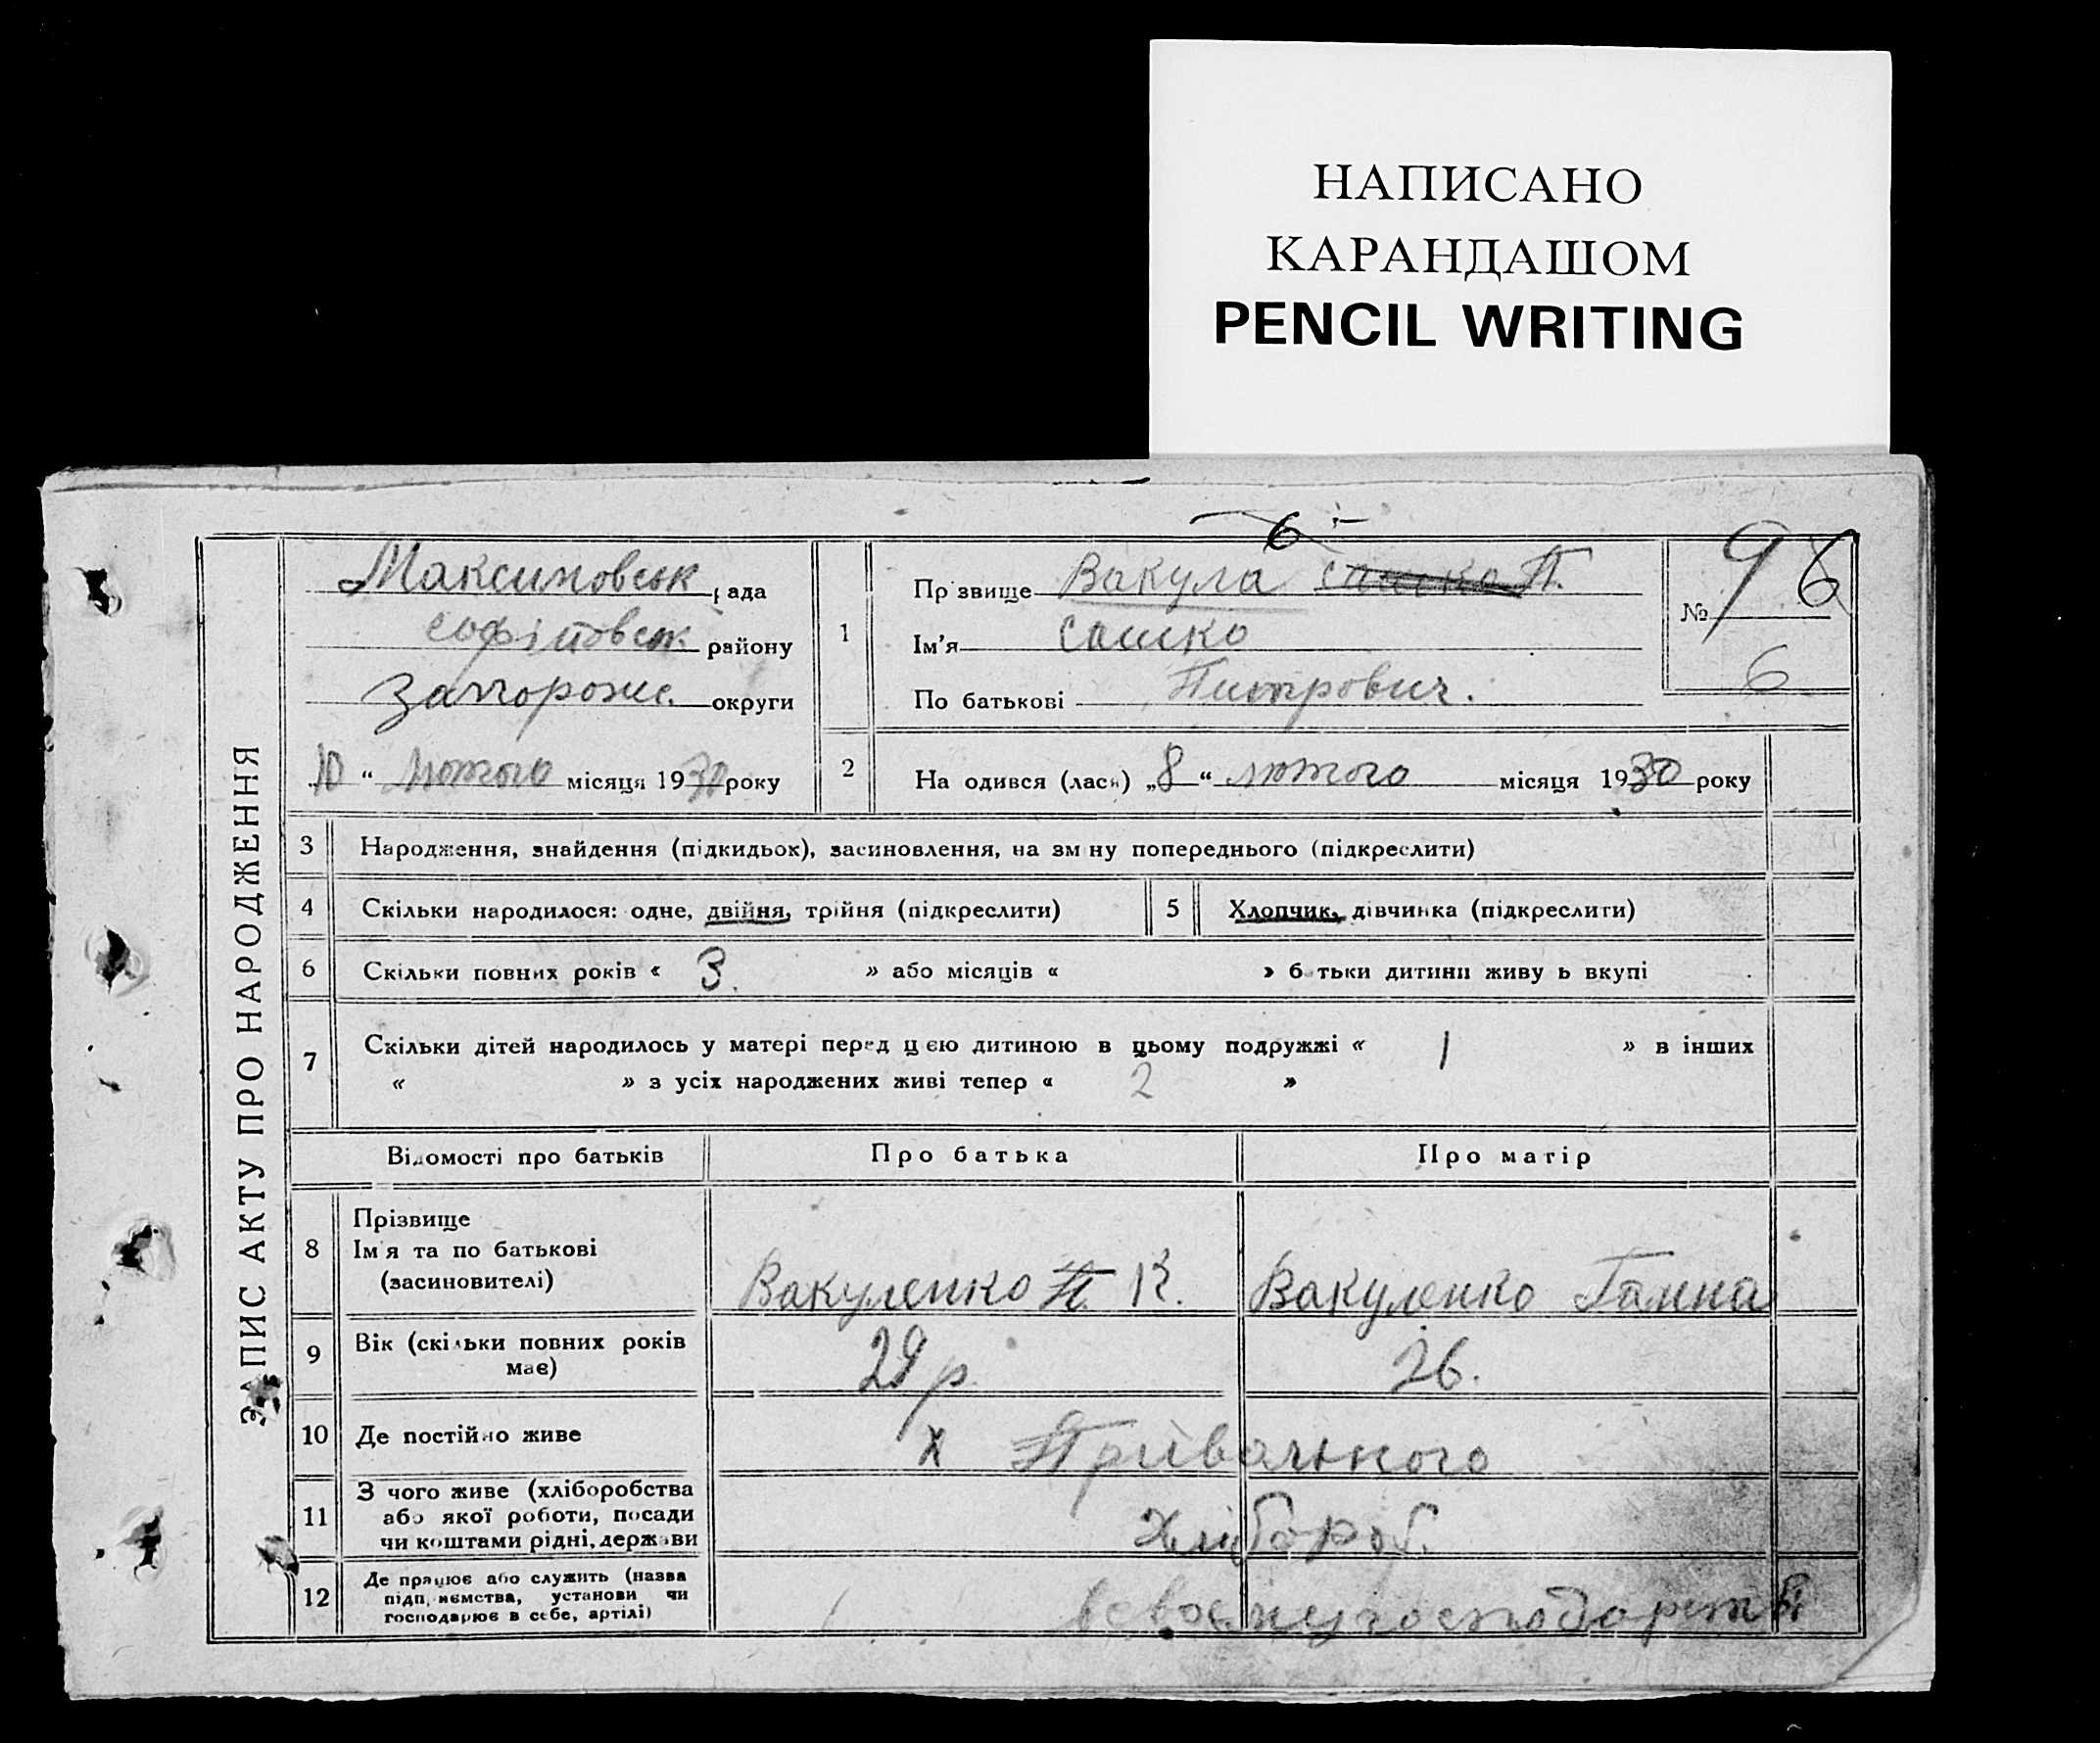 НАПИСАНО
КАРАНДАШОМ
PENCIL WRITING
6
ЗАПИС АКТУ ПРО НАРОДЖЕННЯ
Максимовськ рада
Софіївськ. району
Запорожс. округи
10 " Лютого місяця 1930 року
1
Прізвище Вакула Сашко П.
Ім'я Сашко
По батькові Питрович.
№ 96
6
2
На одився (лася) „8 " лютого місяця 1930 року
3 Народження, знайдення (підкидьох), засиновлення, на зм ну попереднього (підкреслити)
4 Скільки народилося: одне, двійня, трійня (підкреслити)
5 Хлопчик, дівчинка (підкреслити)
6 Скільки повних років « 3. » або місяців « » б тьки дитини живу ь вкупі
7 Скільки дітей народилось у матері перед цією дитиною в цьому подружжі « 1 » в інших
« » з усіх народжених живі тепер « 2 »
Відомості про батьків Про батька Про матір
8 Прізвище
Ім'я та по батькові
(засиновителі)
Вакуленко П. К. Вакуленко Ганна
9 Вік (скільки повних років
має)
29 р. 26.
10 Де постійно живе х Привольного
11 З чого живе (хліборобства
або якої роботи, посади
чи коштами рідні, держави
Хлібороб.
12 Де працює або служить (назва
підп, иємства, установи чи
господарює в себе, артілі)
в своєму господарстві